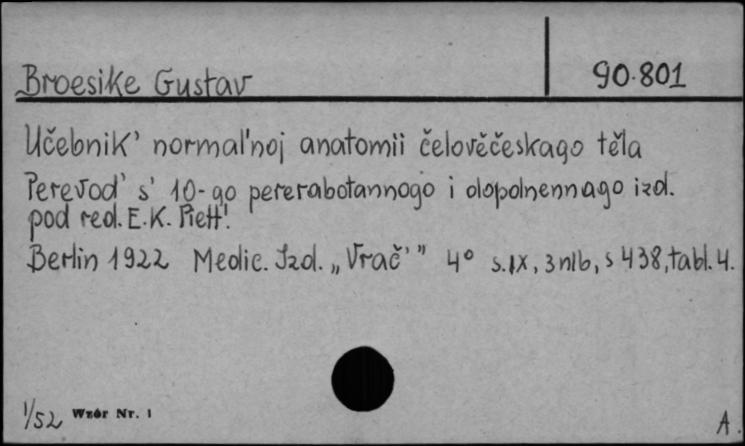 Broesike Gustav 90.801
Učebnik' normal'noj anatomii čelověčeskago těla
Perevod' s' 10-go pererabotannogo i dopolnennago izd.
pod red. E.K. Plett'.
Berlin 1922 Medic. Izd. „Vrač'” 4° s.IX, 3 nlb, s 438, tabl. 4.
1/52 Wzór Nr. 1 A.